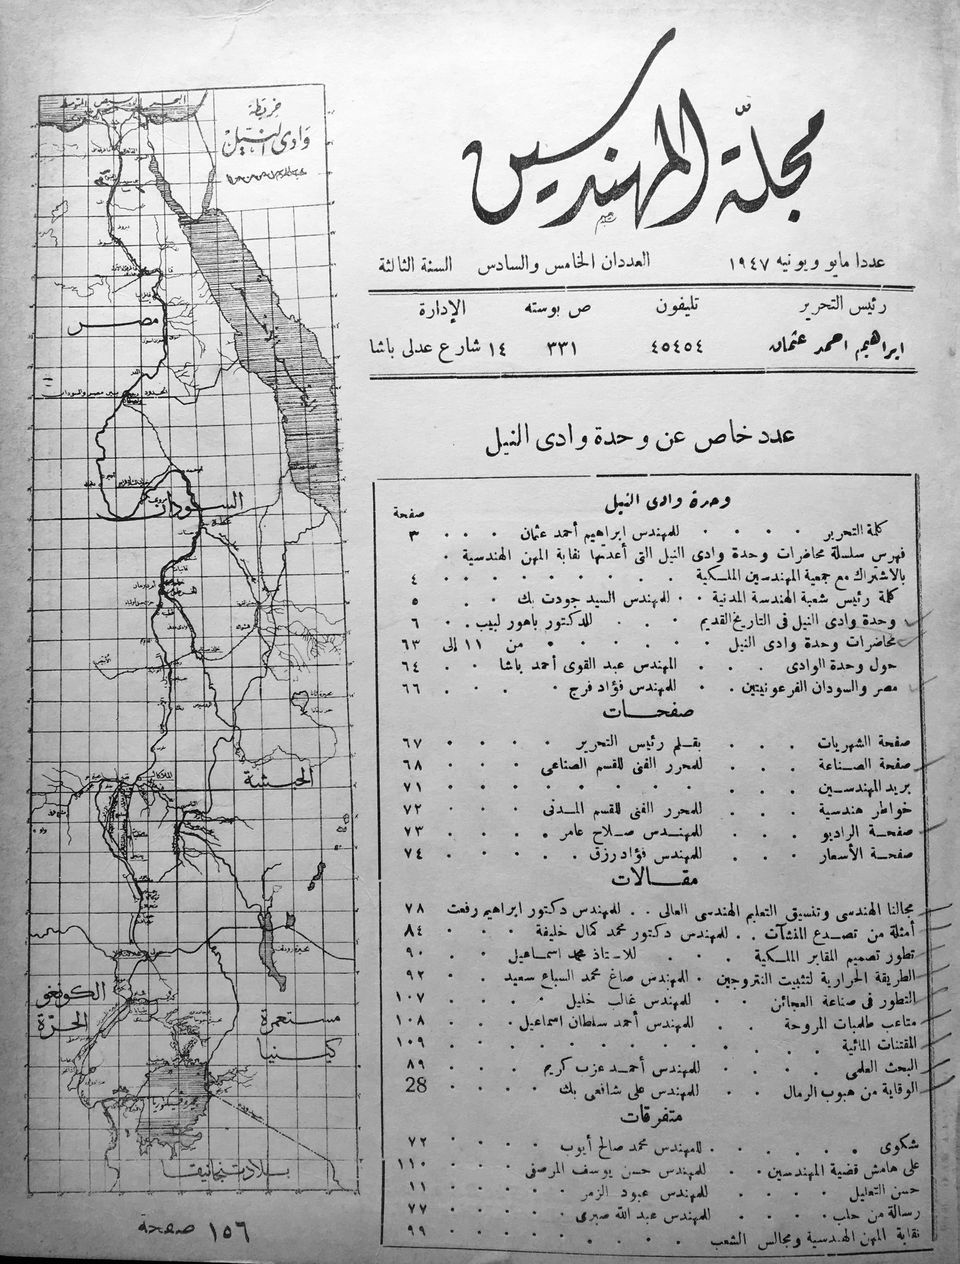 مجلة المهندسين
عددا مايو ويونيه ١٩٤٧ العددان الخامس والسادس السنة الثالثة
رئيس التحرير تليفون ص بوسته الإدارة
ابراهيم احمد عثمان ٤٥٤٥٤ ٣٣١ ١٤ شارع عدلى باشا
عدد خاص عن وحدة وادى النيل
وحدة وادى النيل
صفحة
كلمة التحرير . . . . للمهندس ابراهيم أحمد عثمان . . . ٣
فهرس سلسلة محاضرات وحدة وادى النيل التى أعدتها نقابة المهن الهندسية .
بالاشتراك مع جمعية المهندسين الملكية . . . . . . . . ٤
كلمة رئيس شعبة الهندسة المدنية . . للمهندس السيد جودت بك . . ٥
وحدة وادى النيل فى التاريخ القديم . . . للدكتور باهور لبيب . . ٦
محاضرات وحدة وادى النيل . . . . . من ١١ إلى ٦٣
حول وحدة الوادى . . . . المهندس عبد القوى أحمد باشا . . ٦٤
مصر والسودان الفرعونيتين . . . للمهندس فؤاد فرج . . . . ٦٦
صفحات
صفحة الشهريات . . . بقلم رئيس التحرير . . . . ٦٧
صفحة الصناعة . . . للمحرر الفنى للقسم الصناعى . . . ٦٨
بريد المهندسين . . . . . . . . . . ٧١
خواطر هندسية . . . للمحرر الفنى للقسم المدنى . . . ٧٢
صفحة الراديو . . . للمهندس صلاح عامر . . . . ٧٣
صفحة الأسعار . . . للمهندس فؤاد رزق . . . . ٧٤
مقالات
مجالنا الهندسى وتنسيق التعليم الهندسى العالى . . للمهندس دكتور ابراهيم رفعت ٧٨
أمثلة من تصدع المنشآت . . للمهندس دكتور محمد كمال خليفة . . . ٨٤
تطور تصميم المقابر الملكية . . . للاستاذ محمد اسماعيل . . . ٩٠
الطريقة الحرارية لتثبيت النتروجين . للمهندس صاغ محمد السباع سعيد . . ٩٢
التطور فى صناعة العجائن . . . للمهندس غالب خليل . . . . ١٠٧
متاعب طلمبات المروحة . . . للمهندس أحمد سلطان اسماعيل . . . ١٠٨
المقتنات المائية . . . . . . . . . . ١٠٩
البحث العلمى . . . . للمهندس أحمد عزب كريم . . . . ٨٩
الوقاية من هبوب الرمال . . للمهندس على شافعى بك . . . . 28
متفرقات
شكوى . . . . . للمهندس محمد صالح أيوب . . . . ٧٢
على هامش قضية المهندسين . . للمهندس حسن يوسف المرصفى . . . ١١٠
حسن التعليل . . . . للمهندس عبود الزمر . . . . ١١
رسالة من حلب . . . . للمهندس عبد الله صبرى . . . . ٧٧
نقابة المهن الهندسية ومجالس الشعب . . . . . . . ٩٩
خريطة
وادى النيل
مصر
السودان
الحبشة
الكونغو
الحرة
مستعمرة
كينيا
١٥٦ صفحة